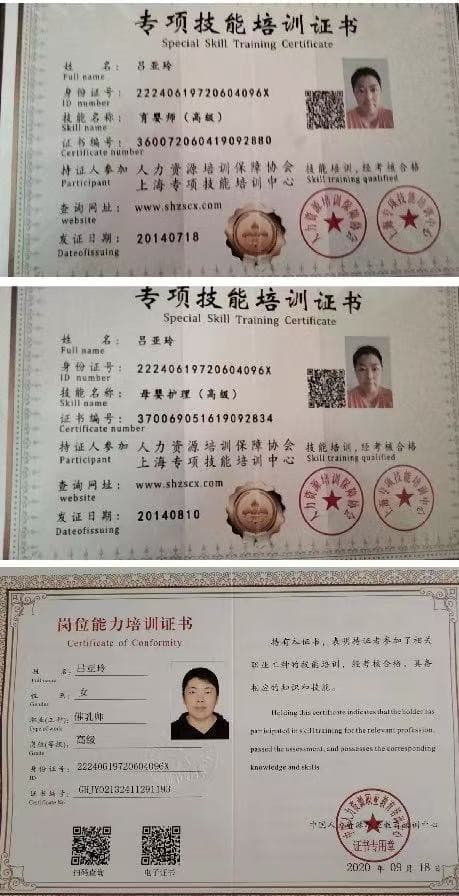 专项技能培训证书
Special Skill Training Certificate
姓 名： 吕亚玲
Full name
身份证号： 22240619720604096X
ID number
技能名称： 育婴师（高级）
Skill name
证书编号： 360072060419092880
Certificate number
持证人参加 人力资源培训保障协会 技能培训,经考核合格
Participant 上海专项技能培训中心 Skill training qualified
查询网址： www.shzscx.com
website
发证日期： 20140718
Dateofissuing
专项技能培训证书
Special Skill Training Certificate
姓 名： 吕亚玲
Full name
身份证号： 22240619720604096X
ID number
技能名称： 母婴护理（高级）
Skill name
证书编号： 370069051619092834
Certificate number
持证人参加 人力资源培训保障协会 技能培训,经考核合格
Participant 上海专项技能培训中心 Skill training qualified
查询网址： www.shzscx.com
website
发证日期： 20140810
Dateofissuing
岗位能力培训证书
Certificate of Conformity
姓 名： 吕亚玲
Full name
性 别： 女
Gender
职业(工种): 催乳师
Type of work
岗位(等级): 高级
Grade
身份证号： 22240619720604096X
ID
证书编号： GHJY02132411291193
Certificate No
扫码查询 电子证书
持有本证书，表明持证者参加了相关
职业工种的技能培训，经考核合格，具备
相应的知识和技能。
Holding this certificate indicates that the holder has
participated in skill training for the relevant profession,
passed the assessment, and possesses the corresponding
knowledge and skills
证书专用章
2020 年 09 月 18 日